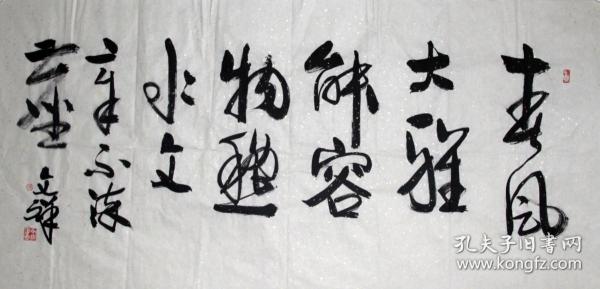 春风
大雅
能容
物龝
水文
章不染
孔夫子旧书网
www.kongfz.com